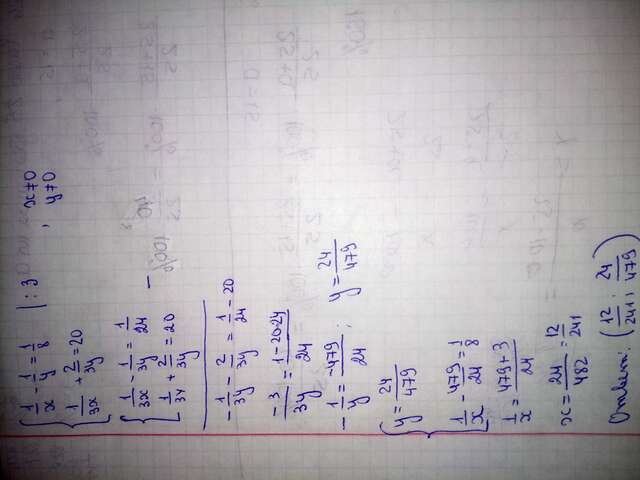 { 1/x - 1/y = 1/8 | : 3 , x≠0
{ 1/3x + 2/3y = 20 y≠0
{ 1/3x - 1/3y = 1/24
{ 1/3x + 2/3y = 20 -
- 1/3y - 2/3y = 1/24 - 20
-3/3y = 1-20·24/24
- 1/y = -479/24 ; y = 24/479
{ y = 24/479
{ 1/x - 479/24 = 1/8
1/x = 479+3/24
x = 24/482 = 12/241
Ответ: (12/241 ; 24/479)